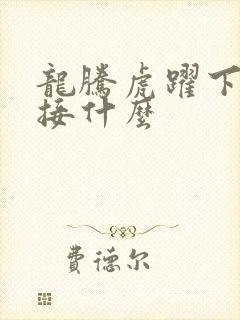 龍騰虎躍下
接什麼
費德尔